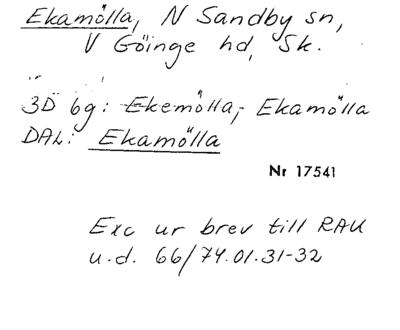 Ekamölla, N Sandby sn,
V Göinge hd, Sk.
3D 6g: Ekemölla,- Ekamölla
DAL: Ekamölla
Nr 17541
Exc ur brev till RAU
u.d. 66/74.01.31-32